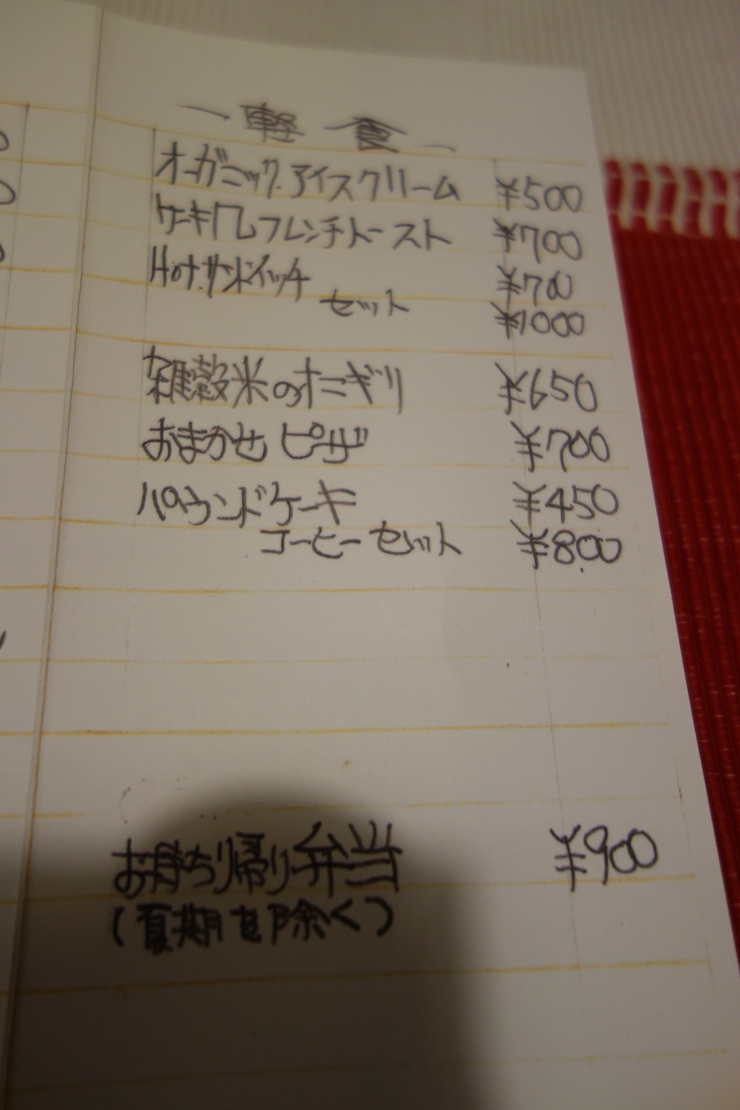 ー軽食ー
オーガニック.アイスクリーム ¥500
フレンチトースト ¥700
Hot.サンドイッチ ¥700
セット ¥1000
雑穀米のオニギリ ¥650
おまかせ ピザ ¥700
パウンドケーキ ¥450
コーヒーセット ¥800
お持ち帰り弁当 ¥900
(夏期を除く)